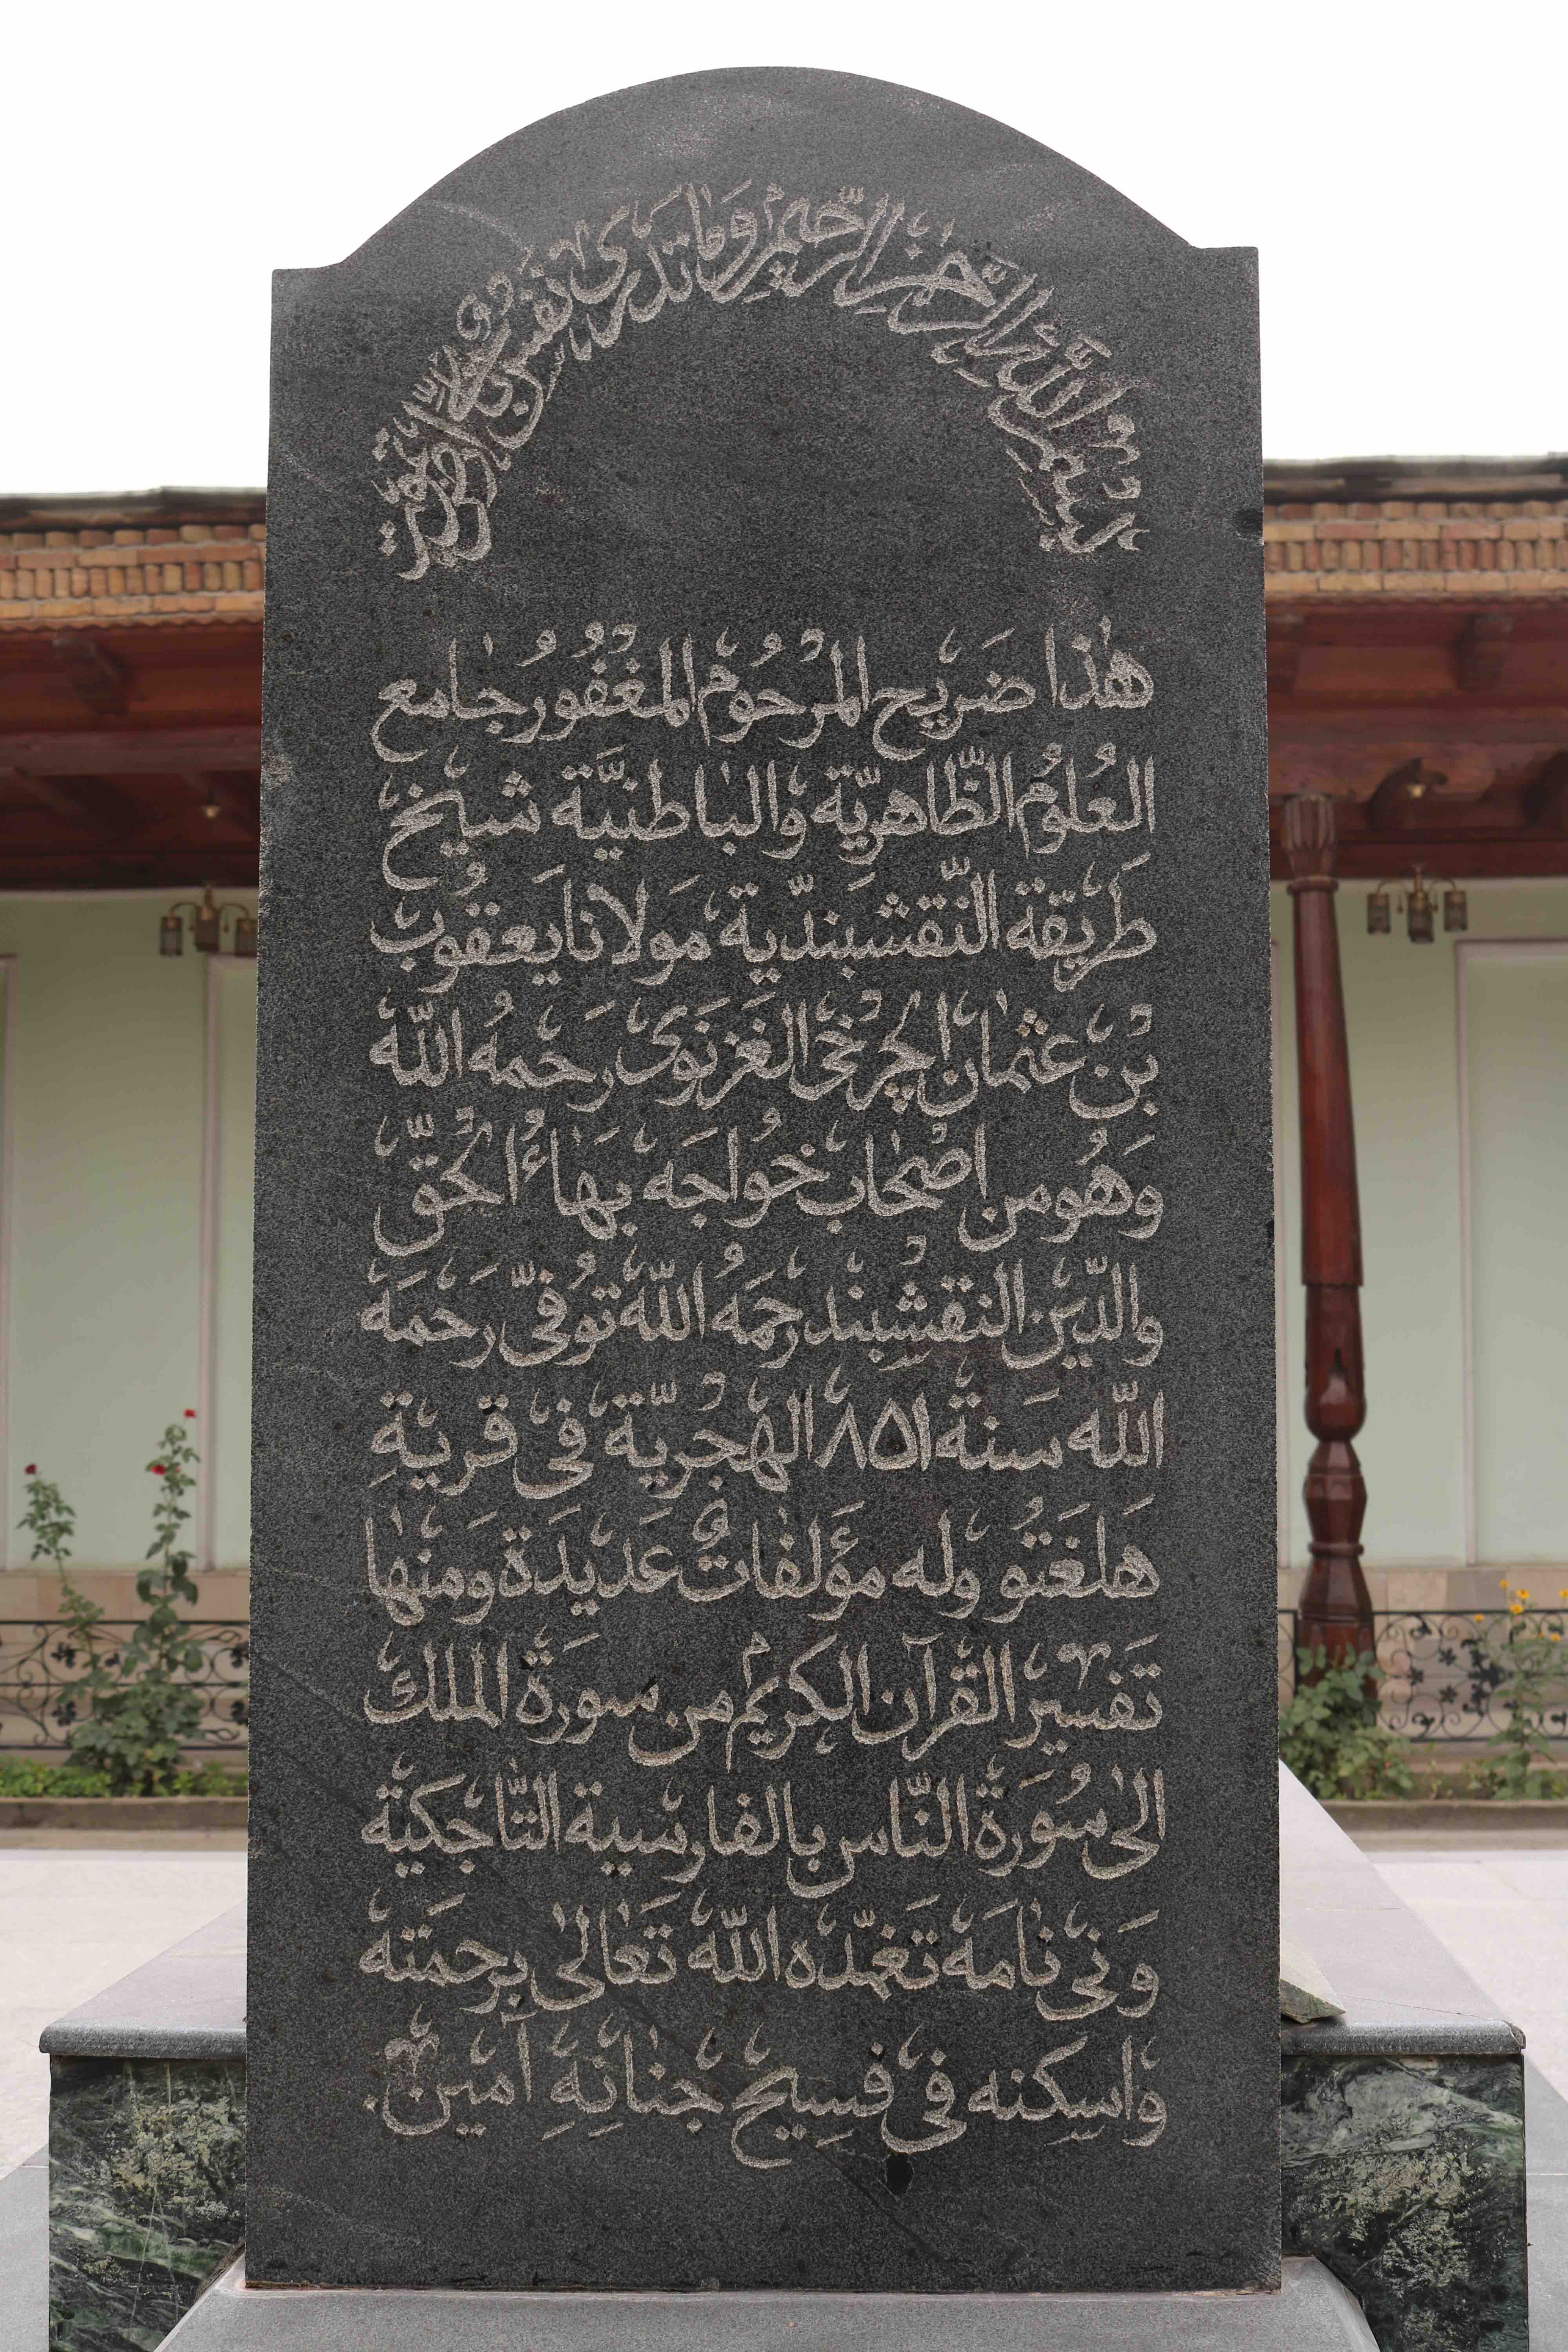 بسم الله الرحمن الرحيم وما تدري نفس باي ارض تموت
هٰذا ضَريح المرْحُوْم المغْفُوْر جٰامع
العُلوُم الظّاهريّة والبٰاطنيَّة شيخ
طَريقة النّقشبنديّة مَولانا يَعقوْب
بْن عثمٰان اچَرْخي الغَزنَوي رَحمهُ اللّه
وَهُو من اصْحٰاب خوُاجَه بَهٰاءُ الْحَقّ
والدّين النقْشِبند رحمَهُ اللّه توُفيّ رَحمَه
اللّه سَنة ٨٥١ الهجْريّة في قريةِ
هَلغَتوُ وله مؤَلفٰاتُ عَديَدة وَمنهٰا
تَفسير القرآن الكريم من سوَرة الملك
الىٰ سوُرَة النّاس بالفارسية التّاجكية
وَني نٰامَه تَغمّده اللّه تَعٰالىٰ برحمَته
واسِكنه في فسِيح جنٰانِهِ آمين.